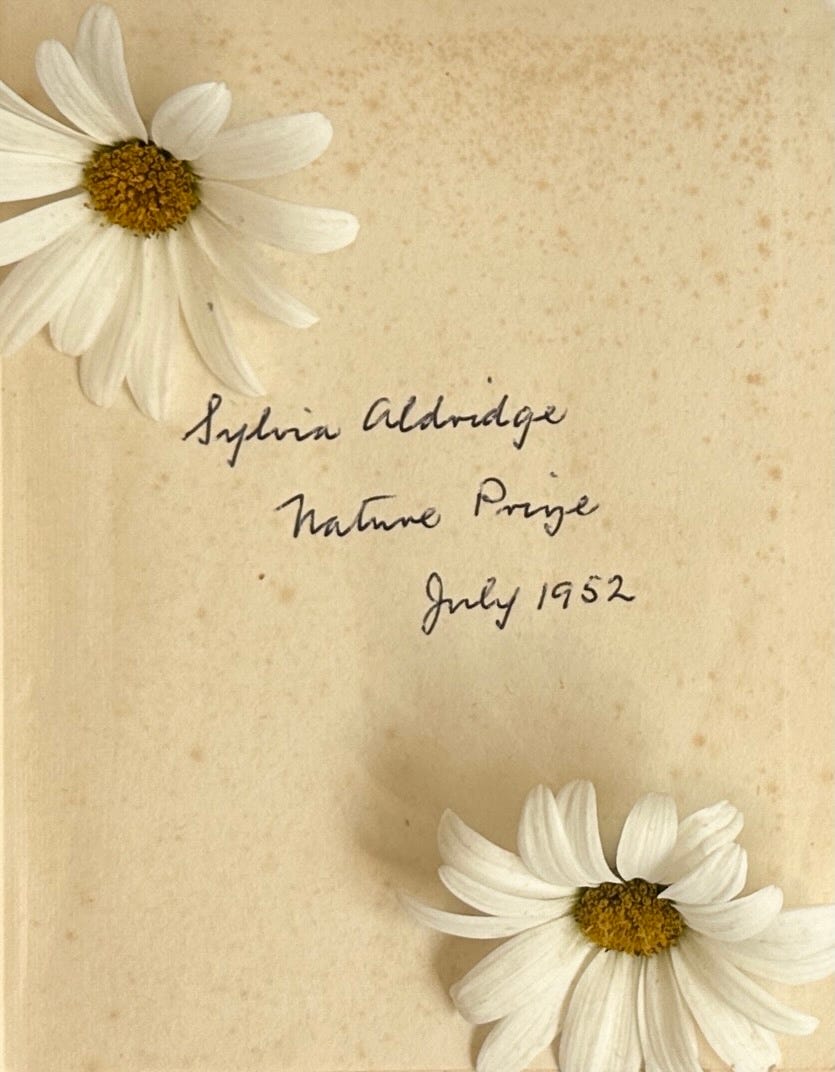 Sylvia Aldridge
Nature Prize
July 1952